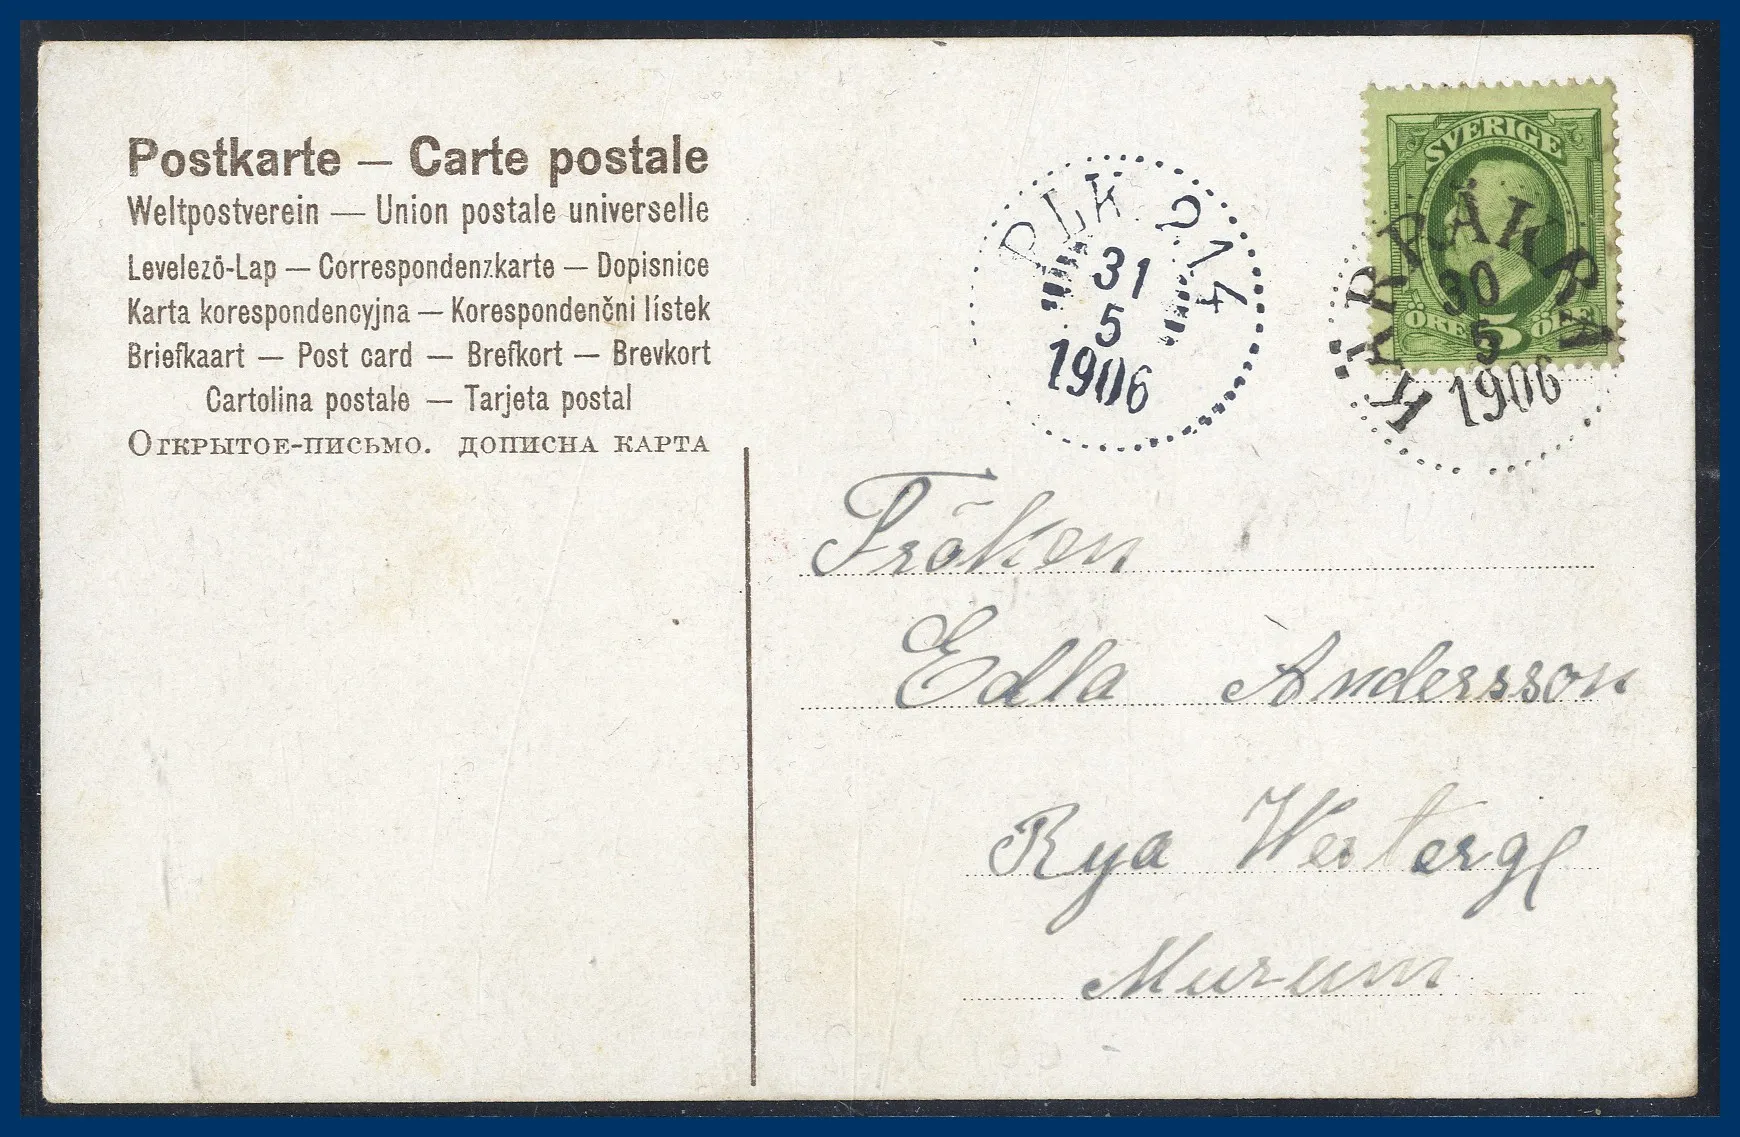 Postkarte — Carte postale
Weltpostverein — Union postale universelle
Levelező-Lap — Correspondenzkarte — Dopisnice
Karta korespondencyjna — Korespondenčni lístek
Briefkaart — Post card — Brefkort — Brevkort
Cartolina postale — Tarjeta postal
Открытое-письмо. дописна карта
PLK 214
31
5
1906
SVERIGE
ÖRE 5 ÖRE
KÄRRÅKRA
30
5
1906
Fröken
Edla Andersson
Rya Westergl
Murum